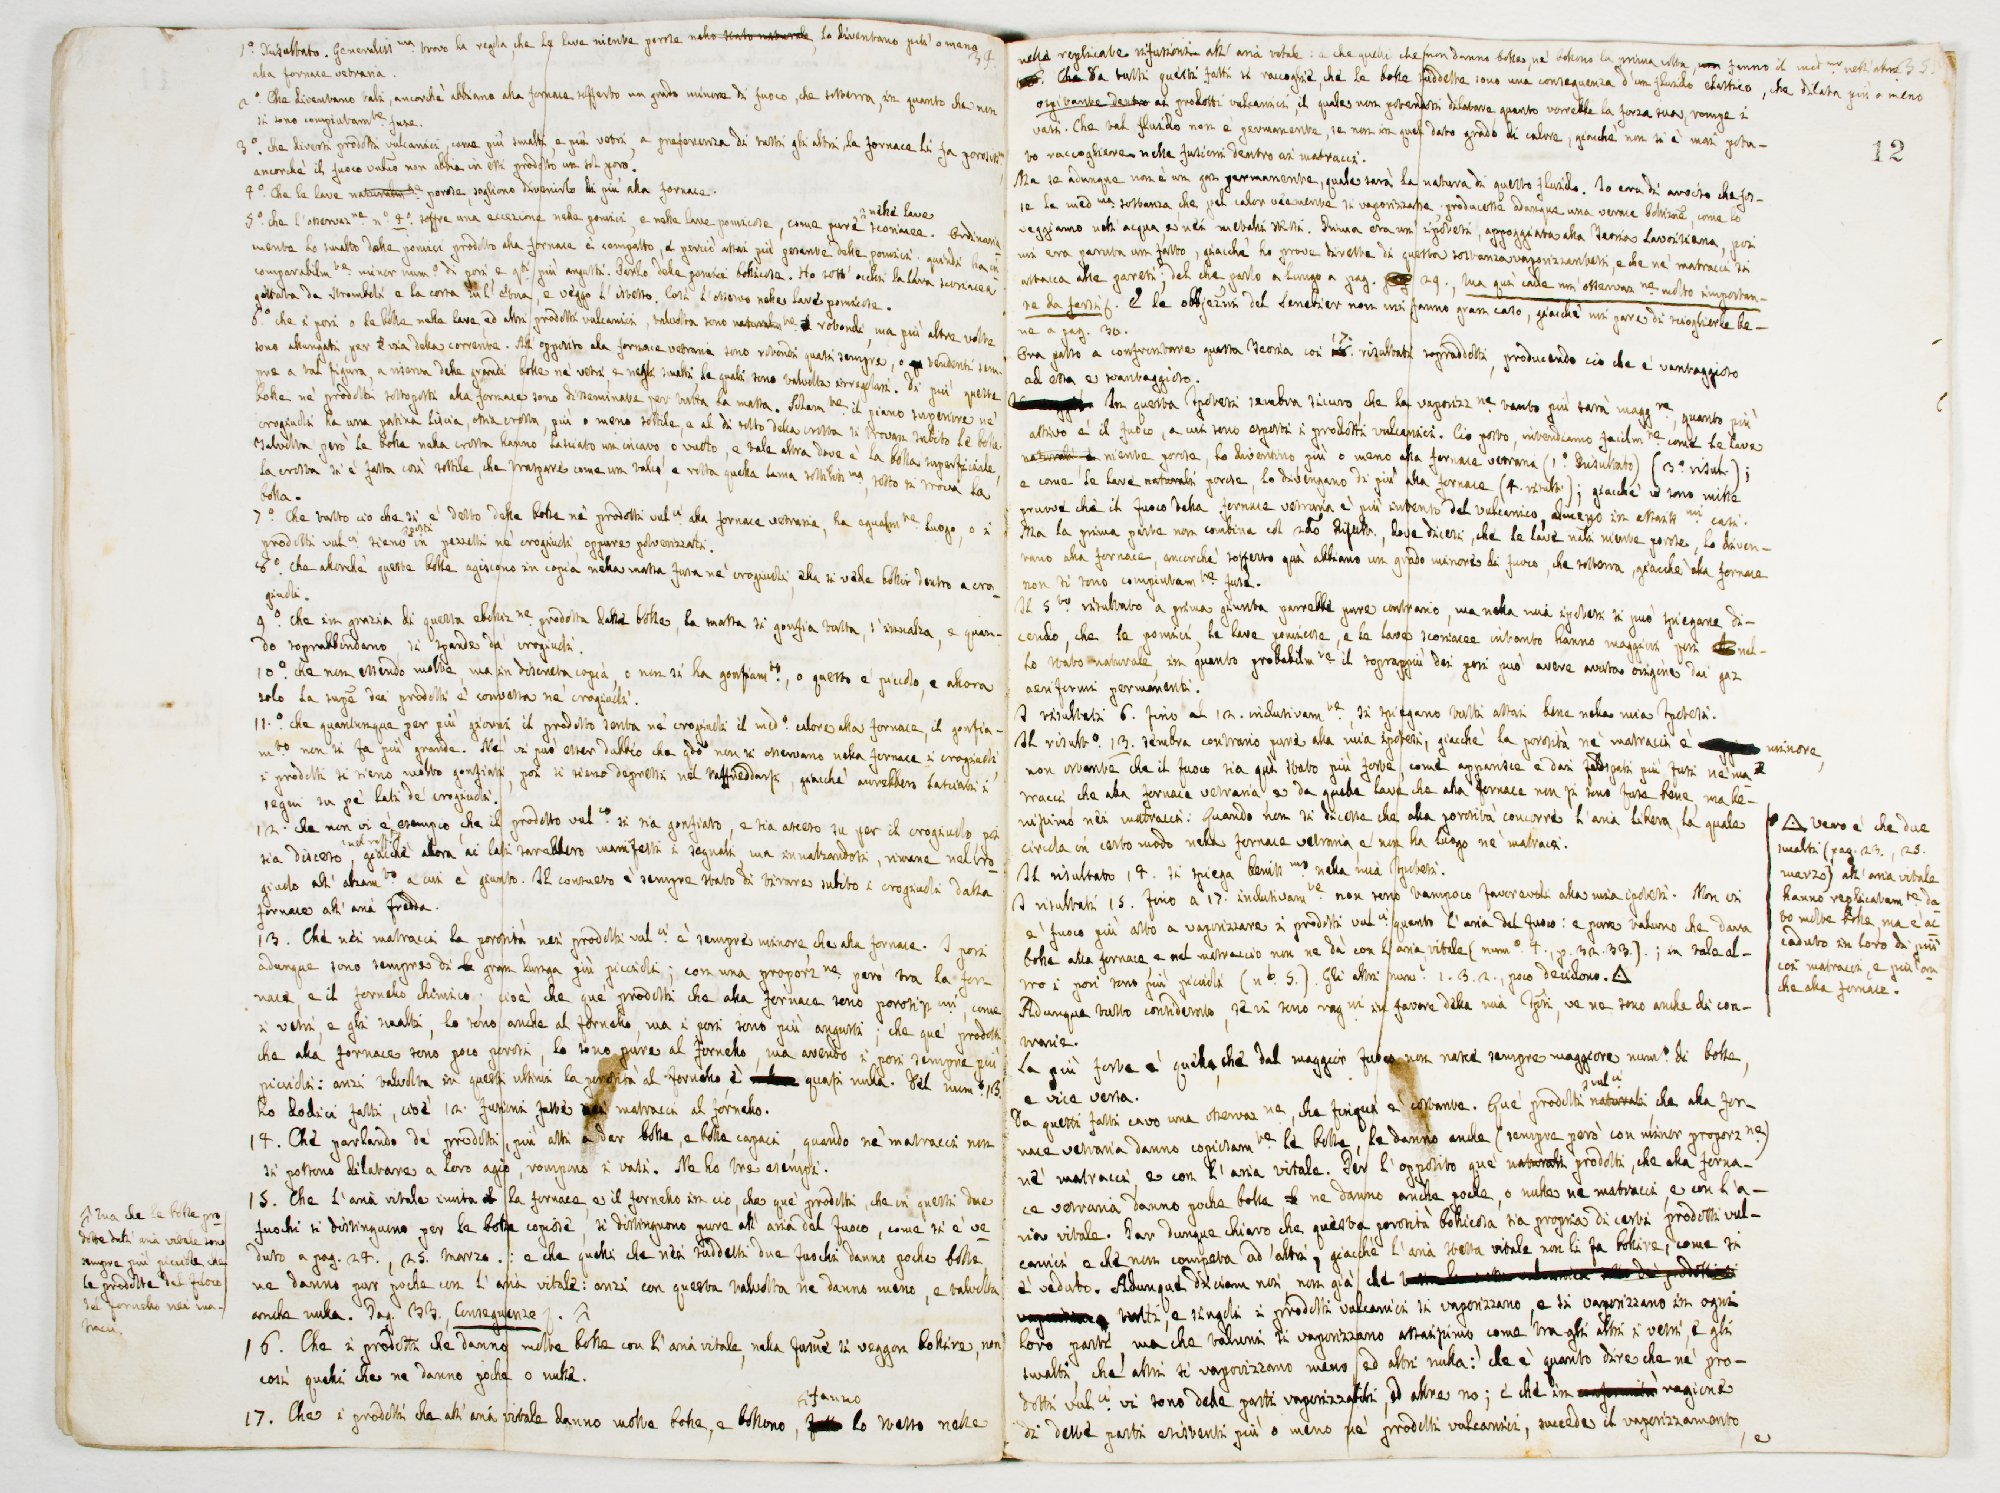 34
1.º Risultato. Generaliss.ma trovo la regola, che le lave niente porose nello stato naturale, lo diventano più o meno
alla fornace vetraria.
2.º Che diventano tali, ancorchè abbiano alla fornace sofferto un grado minore di fuoco, che sotterra, in quanto che non
si sono compiutam.te fuse.
3.º Che diversi prodotti vulcanici, come più smalti e più vetri, a preferenza di tutti gli altri, la fornace li fa porosiss.i,
ancorchè il fuoco vulc.o non abbia in essi prodotto un sol poro.
4.º Che le lave naturalm.te porose, sogliono divenirlo di più alla fornace.
5.º Che l'osservaz.ne n.º 4.º soffre una eccezione nelle pomici, e nelle lave pomicose, come pure nelle lave scoriacee. Ordinaria-
mente lo smalto delle pomici prodotto alla fornace è compatto, e perciò assai più pesante delle pomici. quindi ha in
comparabilm.te minor num.º di pori e q.ti più angusti. Parlo delle pomici bollicose. Ho sott'occhi la lava scoriacea
gettata da Stromboli e la corta sull'Etna, e veggo l'istesso. Così l'osservo nelle lave pomicose.
6.º che i pori o le bolle nelle lave, ed altri prodotti vulcanici, talvolta sono naturalm.te rotondi, ma più altre volte
sono allungati, per l'via della corrente. All'opposito alla fornace vetraria sono rotondi quasi sempre, o tendenti sem-
pre a tal figura, a riserva delle grandi bolle ne' vetri, e negli smalti, le quali sono talvolta irregolari. Di più queste
bolle ne' prodotti sottoposti alla fornace sono disseminate per tutta la massa. Solam.te il piano superiore ne'
crogiuoli ha una patina liscia, ossia crosta, più o meno sottile, e al di sotto della crosta si trovan subito le bolle.
Talvolta però le bolle nella crosta hanno lasciato un incavo o vuoto, e tale altra dove è la bolla superficiale,
la crosta si è fatta così sottile, che traspare come un talco, e rotta quella lama sottiliss.ma, sotto si trova la
bolla.
7.º Che tutto ciò che si è detto delle bolle ne' prodotti vul.ci alla fornace vetraria, ha egualm.te luogo, o i
prodotti vul.ci sieno posti in pezzetti ne' crogiuoli, oppure polverizzati.
8.º Che allorchè queste bolle agiscono in copia nella massa fusa ne' crogiuoli ella si vede bollir dentro a cro-
giuoli.
9.º che in grazia di questa ebolliz.ne prodotta dalle bolle, la massa si gonfia tutta, s'innalza, e quan-
do soprabbondano, si spande da' crogiuoli.
10.º che non essendo molte, ma in discreta copia, o non si ha gonfiam.to, o questo è piccolo, e allora
solo la supe. dei prodotti è convessa ne' crogiuoli.
11.º che quantunque per più giorni il prodotto senta ne' crogiuoli il med.º calore alla fornace, il gonfia-
m.to non si fa più grande. Nè vi può esser dubbio che q.do non si osservano nella fornace i crogiuoli,
i prodotti si sieno molto gonfiati, poi si sieno depressi nel raffreddarsi, giacchè avrebbero lasciati i
segni su pe' lati de' crogiuoli.
12. Che non vi è esempio che il prodotto vul.co si sia gonfiato, e sia asceso su per il crogiuolo poi
sia disceso, giacchè allora ai lati sarebbero manifesti i segnali, ma innalzandosi, rimane nel cro-
giuolo all'alzam.to a cui è giunto. Il consueto è sempre stato di tirare subito i crogiuoli dalla
fornace all'aria fredda.
13. Che nei matracci la porosità nei prodotti vul.ci è sempre minore, che alla fornace. I pori
adunque sono sempre di gran lunga più piccioli; con una proporz.ne però tra la for-
nace e il fornello chimico. cioè che que' prodotti che alla fornace sono porosiss.mi, come
i vetri, e gli smalti, lo sono anche al fornello, ma i pori sono più angusti; che que' prodotti
che alla fornace sono poco porosi, lo sono pure al fornello, ma avendo i pori sempre più
piccioli: anzi talvolta in questi ultimi la porosità al fornello è quasi nulla. Del num.º 13
ho dodici fatti, cioè 12. fusioni fatte nei matracci al fornello.
14. Che parlando de' prodotti, più atti a dar bolle, e bolle capaci, quando ne' matracci non
si possono dilatare a loro agio, rompono i vasi. Ne ho tre esempi.
15. Che l'aria vitale imita la fornace e il fornello in ciò, che que' prodotti, che in questi due
fuochi si distinguono per le bolle copiose, si distinguono pure all'aria dal fuoco, come si è ve-
duto a pag. 24., 25. Marzo.: e che quelli che nei suddetti due fuochi danno poche bolle,
ne danno pur poche con l'aria vitale: anzi con questa talvolta ne danno meno, e talvolta
anche nulla. Pag. 33., Conseguenze.
16. Che i prodotti che danno molte bolle con l'aria vitale, nella fusne. si veggon bollire, non
così quelli che ne danno poche o nulle.
17. Che i prodotti che all'aria vitale danno molte bolle, e bollono, si fanno lo stesso nelle
ma che le bolle pro-
dotte dall'aria vitale sono
sempre più picciole che
le prodotte dal fuoco
del fornello nei ma-
tracci.
35
12
nelle replicate rifusioni all'aria vitale: e che quelli che non danno bolle, nè bollono la prima volta, fanno il med.mo nell'altre
Che da tutti questi fatti si raccoglie, che le bolle suddette sono una conseguenza d'un fluido elastico, che dilata più o meno
ospitante dentro ai prodotti vulcanici, il quale non potendosi dilatare quanto vorrebbe la forza sua, rompe i
vasi. Che tal fluido non è permanente, se non in quel dato grado di calore, giacchè non si è mai potu-
to raccogliere nelle fusioni dentro ai matracci.
Ma se adunque non è un gas permanente, quale sarà la natura di questo fluido. Io era di avviso che fos-
se la med.ma sostanza, che pel calor veemente si vaporizzasse, producesse adunque una vernice bollizione come lo
veggiamo nell'acqua e nei metalli stessi. Prima era un'ipotesi, appoggiata alla Teoria Lavoisiana, poi
mi era paruta un fatto, giacchè ho prove dirette di questa sostanza vaporizzantesi, e che ne' matracci si
attacca alle pareti; del che parlo a lungo a pag. 29., Ma quà cade un'osservaz.ne molto importan-
te da farsi. E le obbiezioni del Senebier non mi fanno gran caso, giacchè mi pare di scioglierle be-
ne a pag. 30.
Ora passo a confrontare questa Teoria coi 17. risultati sopraddetti, producendo ciò che è vantaggioso
ad essa e svantaggioso.
In questa Ipotesi sembra sicuro, che la vaporizz.ne tanto più sarà magg.re, quanto più
attivo è il fuoco, a cui sono esposti i prodotti vulcanici. Ciò posto, intendiamo facilm.te come le lave
naturali niente porose, lo diventino più o meno alla fornace vetraria (1.º Risultato) (3.º risult.);
e come le lave naturali porose, lo divengano di più alla fornace (4. risult.); giacchè vi sono mille
pruove che il fuoco della fornace vetraria è più intento del vulcanico, almeno in assaiss.mi casi.
Ma la prima parte non combina col 2do Risult., dove dicesi, che le lave nelle niente porose, lo diven-
tano alla fornace, ancorchè sofferto quà abbiano un grado minore di fuoco, che sotterra, giacchè alla fornace
non si sono compiutam.te fuse.
Il 5.to risultato a prima giunta parrebbe pure contrario, ma nella mia ipotesi si può spiegare di-
cendo, che le pomici, le lave pomicose, e le lave scoriacee intanto hanno maggiori pori nel-
lo stato naturale, in quanto probabilm.te il soprappiù dei pori può avere avuta origine dai gaz
aeriformi permanenti.
I risultati 6. fino al 12. inclusivam.te, si spiegano tutti assai bene nella mia Ipotesi.
Il risult.º 13. sembra contrario pure alla mia ipotesi, giacchè la porosità ne' matracci è minore,
non ostante che il fuoco sia quà stato più forte, come apparisce e dai feldspati più fusi ne' ma-
tracci, che alla fornace vetraria e da quelle lave che alla fornace non si sono fuse bene, ma be-
nissimo nei matracci: Quando non si dicesse che alla porosità concorre l'aria libera, la quale
circola in certo modo nella fornace vetraria, e non ha luogo ne' matracci.
Il risultato 14. si spiega beniss.mo nella mia Ipotesi.
I risultati 15. fino a 17. inclusivam.te non sono tampoco favorevoli alla mia ipotesi. Non vi
è fuoco più atto a vaporizzare i prodotti vul.ci quanto l'aria del fuoco: e pure taluno che dava
bolle alla fornace e nel matraccio non ne dà con l'aria vitale (num.º 4., p. 32.33.).; in tale al-
tro i pori sono più piccioli (n.º 5.). Gli altri num.i 1. 3. 2., poco decidono. △
Adunque tutto considerato, se vi sono rag.ni in favore della mia Ipsi, ve ne sono anche di con-
trarie.
La più forte è quella, che dal maggior fuoco non nasce sempre maggiore num.º di bolle,
e vice versa.
Da questi fatti cavo una osservaz.ne, che finquà è costante. Que' prodotti vul.ci naturali che alla for-
nace vetraria danno copiosam.te le bolle, le danno anche (sempre però con minor proporz.ne)
ne' matracci e con l'aria vitale. Per l'opposito que' naturali prodotti, che alla forna-
ce vetraria danno poche bolle ne danno anche poche, o nulle ne matracci, e con l'a-
ria vitale. Par dunque chiaro che questa porosità bollicosa sia propria di certi prodotti vul-
canici e che non competa ad altri, giacchè l'aria stessa vitale non li fa bollire, come si
è veduto. Adunque diciam noi, non già che
tutti, e singoli i prodotti vulcanici si vaporizzano, e si vaporizzano in ogni
loro parte, ma che taluni si vaporizzano assaissimo come tra gli altri i vetri, e gli
smalti, che altri si vaporizzano meno ed altri nulla: che è quanto dire che ne' pro-
dotti vul.ci vi sono delle parti vaporizzabili, ed altre no; e che in ragione
di dette parti esistenti più o meno ne' prodotti vulcanici, succede il vaporizzamento,
e
△ vero è che due
smalti (pag. 23., 25.
marzo) all'aria vitale
hanno replicatam.te da-
to molte bolle, ma è ac-
caduto in loro di più
coi matracci, e più an-
che alla fornace.